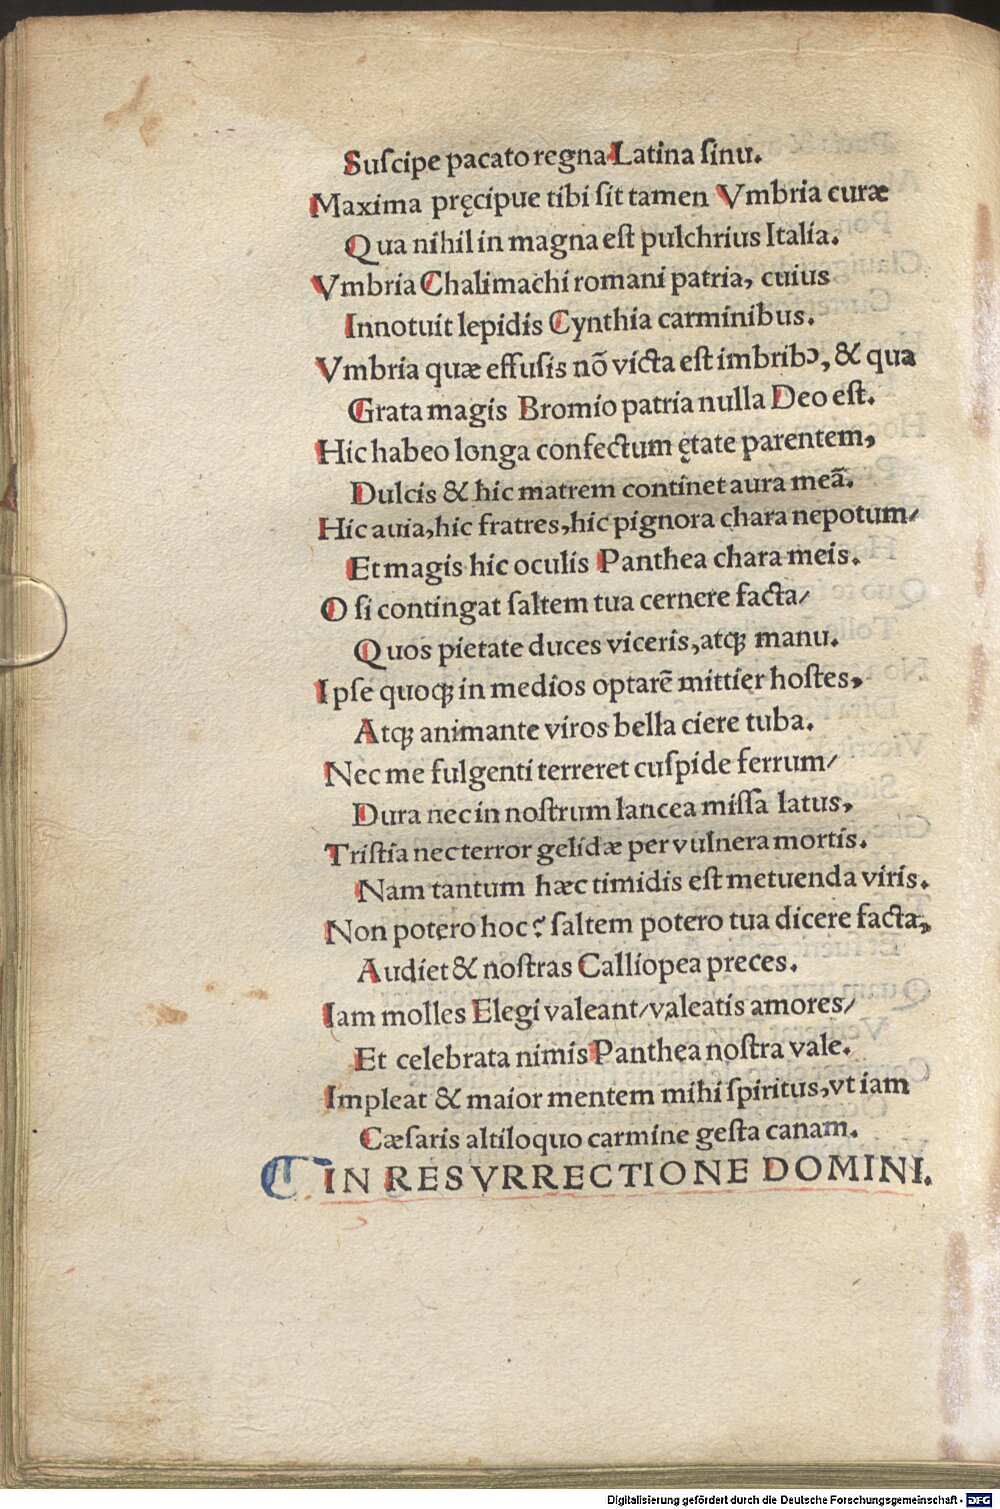 Suſcipe pacato regna Latina ſinu.
Maxima pręcipue tibi ſit tamen Vmbria curæ
Qua nihil in magna eſt pulchrius Italia.
Vmbria Chalimachi romani patria, cuius
Innotuit lepidis Cynthia carminibus.
Vmbria quæ effuſis nō victa eſt imbribꝰ, & qua
Grata magis Bromio patria nulla Deo eſt.
Hic habeo longa confectum ętate parentem,
Dulcis & hic matrem continet aura meā.
Hic auia, hic fratres, hic pignora chara nepotum/
Et magis hic oculis Panthea chara meis.
O ſi contingat ſaltem tua cernere facta/
Quos pietate duces viceris, atqꝫ manu.
Ipſe quoqꝫ in medios optarē mittier hoſtes,
Atqꝫ animante viros bella ciere tuba.
Nec me fulgenti terreret cuſpide ferrum/
Dura nec in noſtrum lancea miſſa latus,
Triſtia nec terror gelidæ per vulnera mortis.
Nam tantum hæc timidis eſt metuenda viris.
Non potero hoc? ſaltem potero tua dicere facta,
Audiet & noſtras Calliopea preces.
Iam molles Elegi valeant/valeatis amores/
Et celebrata nimis Panthea noſtra vale.
Impleat & maior mentem mihi ſpiritus, vt iam
Cæſaris altiloquo carmine geſta canam.
IN RESVRRECTIONE DOMINI.
Digitalisierung gefördert durch die Deutsche Forschungsgemeinschaft - DFG